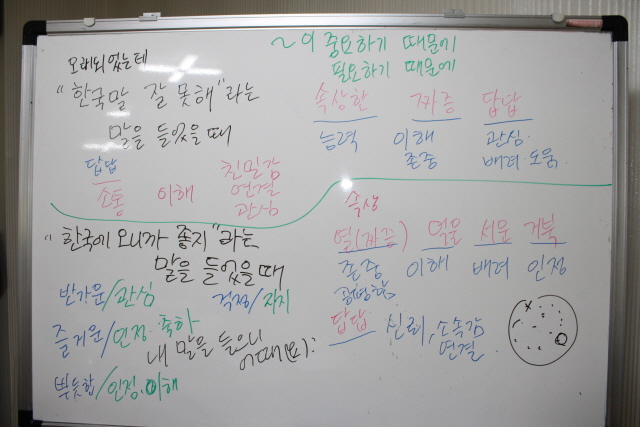 ~이 중요하기 때문에
필요하기 때문에
오래되었는데
"한국말 잘 못해"라는
말을 들었을 때
속상한 짜증 답답
능력 이해 관심.
존중 배려 도움.
답답
소통 이해 친밀감
연결
관심
속상
"한국에 오니까 좋지"라는
말을 들었을 때
열(짜증) 억울 서운 거북
존중 이해 배려 인정
공평함.
반가운/관심 걱정/지지
즐거운/인정. 축하
내 말을 들으니
어때(요):
답답 신뢰, 소속감
연결
뿌듯함/인정.이해